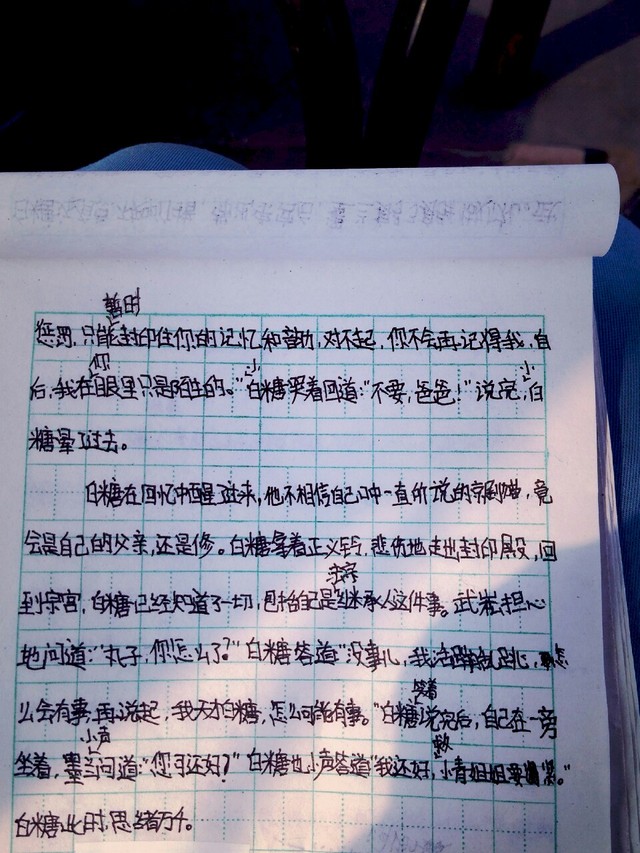 暂时
惩罚，只能封印住你的记忆和韵力，对不起，你不会再记得我，自
你 小 小
后，我在眼里只是陌生的。”白糖哭着回道：“不要，爸爸！”说完，白
糖晕了过去。
白糖在回忆中醒了过来，他不相信自己口中一直所说的京剧猫，竟
会是自己的父亲，还是修。白糖拿着正义铃，悲伤地走出封印殿，回
守序
到宗宫，白糖已经知道了一切，包括自己是继承人这件事。武崧担心
地问道：“丸子，你怎么了？”白糖答道“没事儿，我活蹦乱跳，怎
么会有事，再说起，我天才白糖，怎么可能有事。”白糖说完后，自己在一旁
笑着
坐着，墨兰问道：“您可还好？”白糖也小声答道“我还好，小青姐姐要紧。”
小声 救
白糖此时，思绪万千。